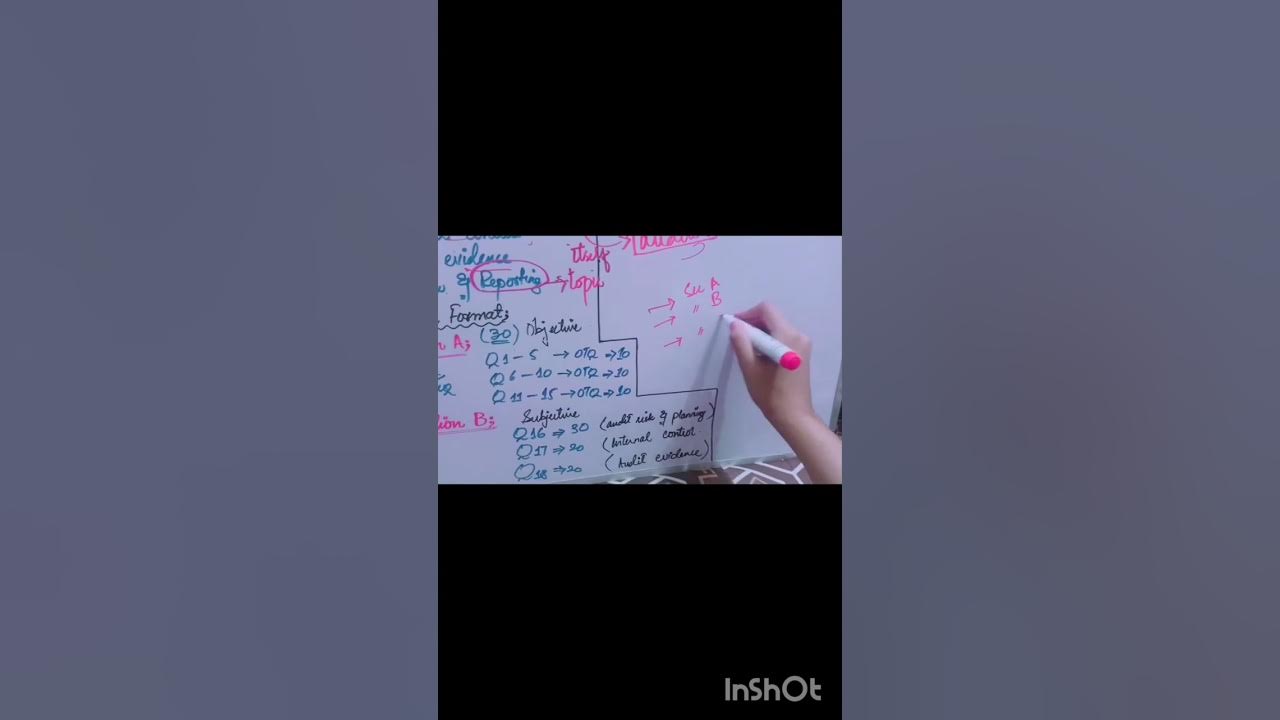 evidence
itself
& Reporting → topic
Format;
A; (30) Objective
Q1 - 5 → OTQ ⇒ 10
Q6 - 10 → OTQ ⇒ 10
Q11 - 15 → OTQ ⇒ 10
B; Subjective
Q16 ⇒ 30 (audit risk & planning)
Q17 ⇒ 20 (Internal control
Q18 ⇒ 20 (Audit evidence)
→ Sec A
→ " B
→ "
InShOt